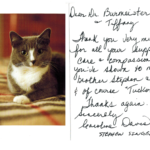 Dear Dr. Burmeister
& Tiffany
Thank you very much
for all your
care & compassion
you've shown to my
brother Stephen &
of course Tucker
Thanks again.
Sincerely